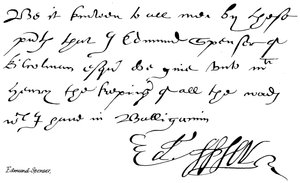 Be it knowen to all men by these
pnts that I Edmund Spenser of
Kilcolman esqr. do give unto mr
Henry the keping of all the wods
wch I have in Balliganim
Ed Spser
Edmund Spenser.